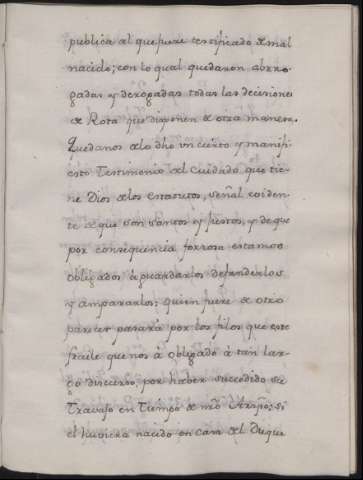 publica al que fuere certificado de mal
nacido; con lo qual quedaron abrro-
gadas y derogadas todas las decisiones
de Rota que disponen de otra manera.
Quedanos de lo dho un cierto y manifi-
esto Testimonio del Cuidado que tie-
ne Dios de los estatutos, señal eviden-
te de que son santos y justos, y de que
por consequencia forzosa estamos
obligados á guardarlos defenderlos
y ampararlos; quien fuere de otro
parecer pasará por los filos que este
fraile que nos á obligado á tan lar-
go discurso, por haber succedido su
Travajo en Tiempo de nro Arzpo; Si
el huviera nacido en Casa del Duque